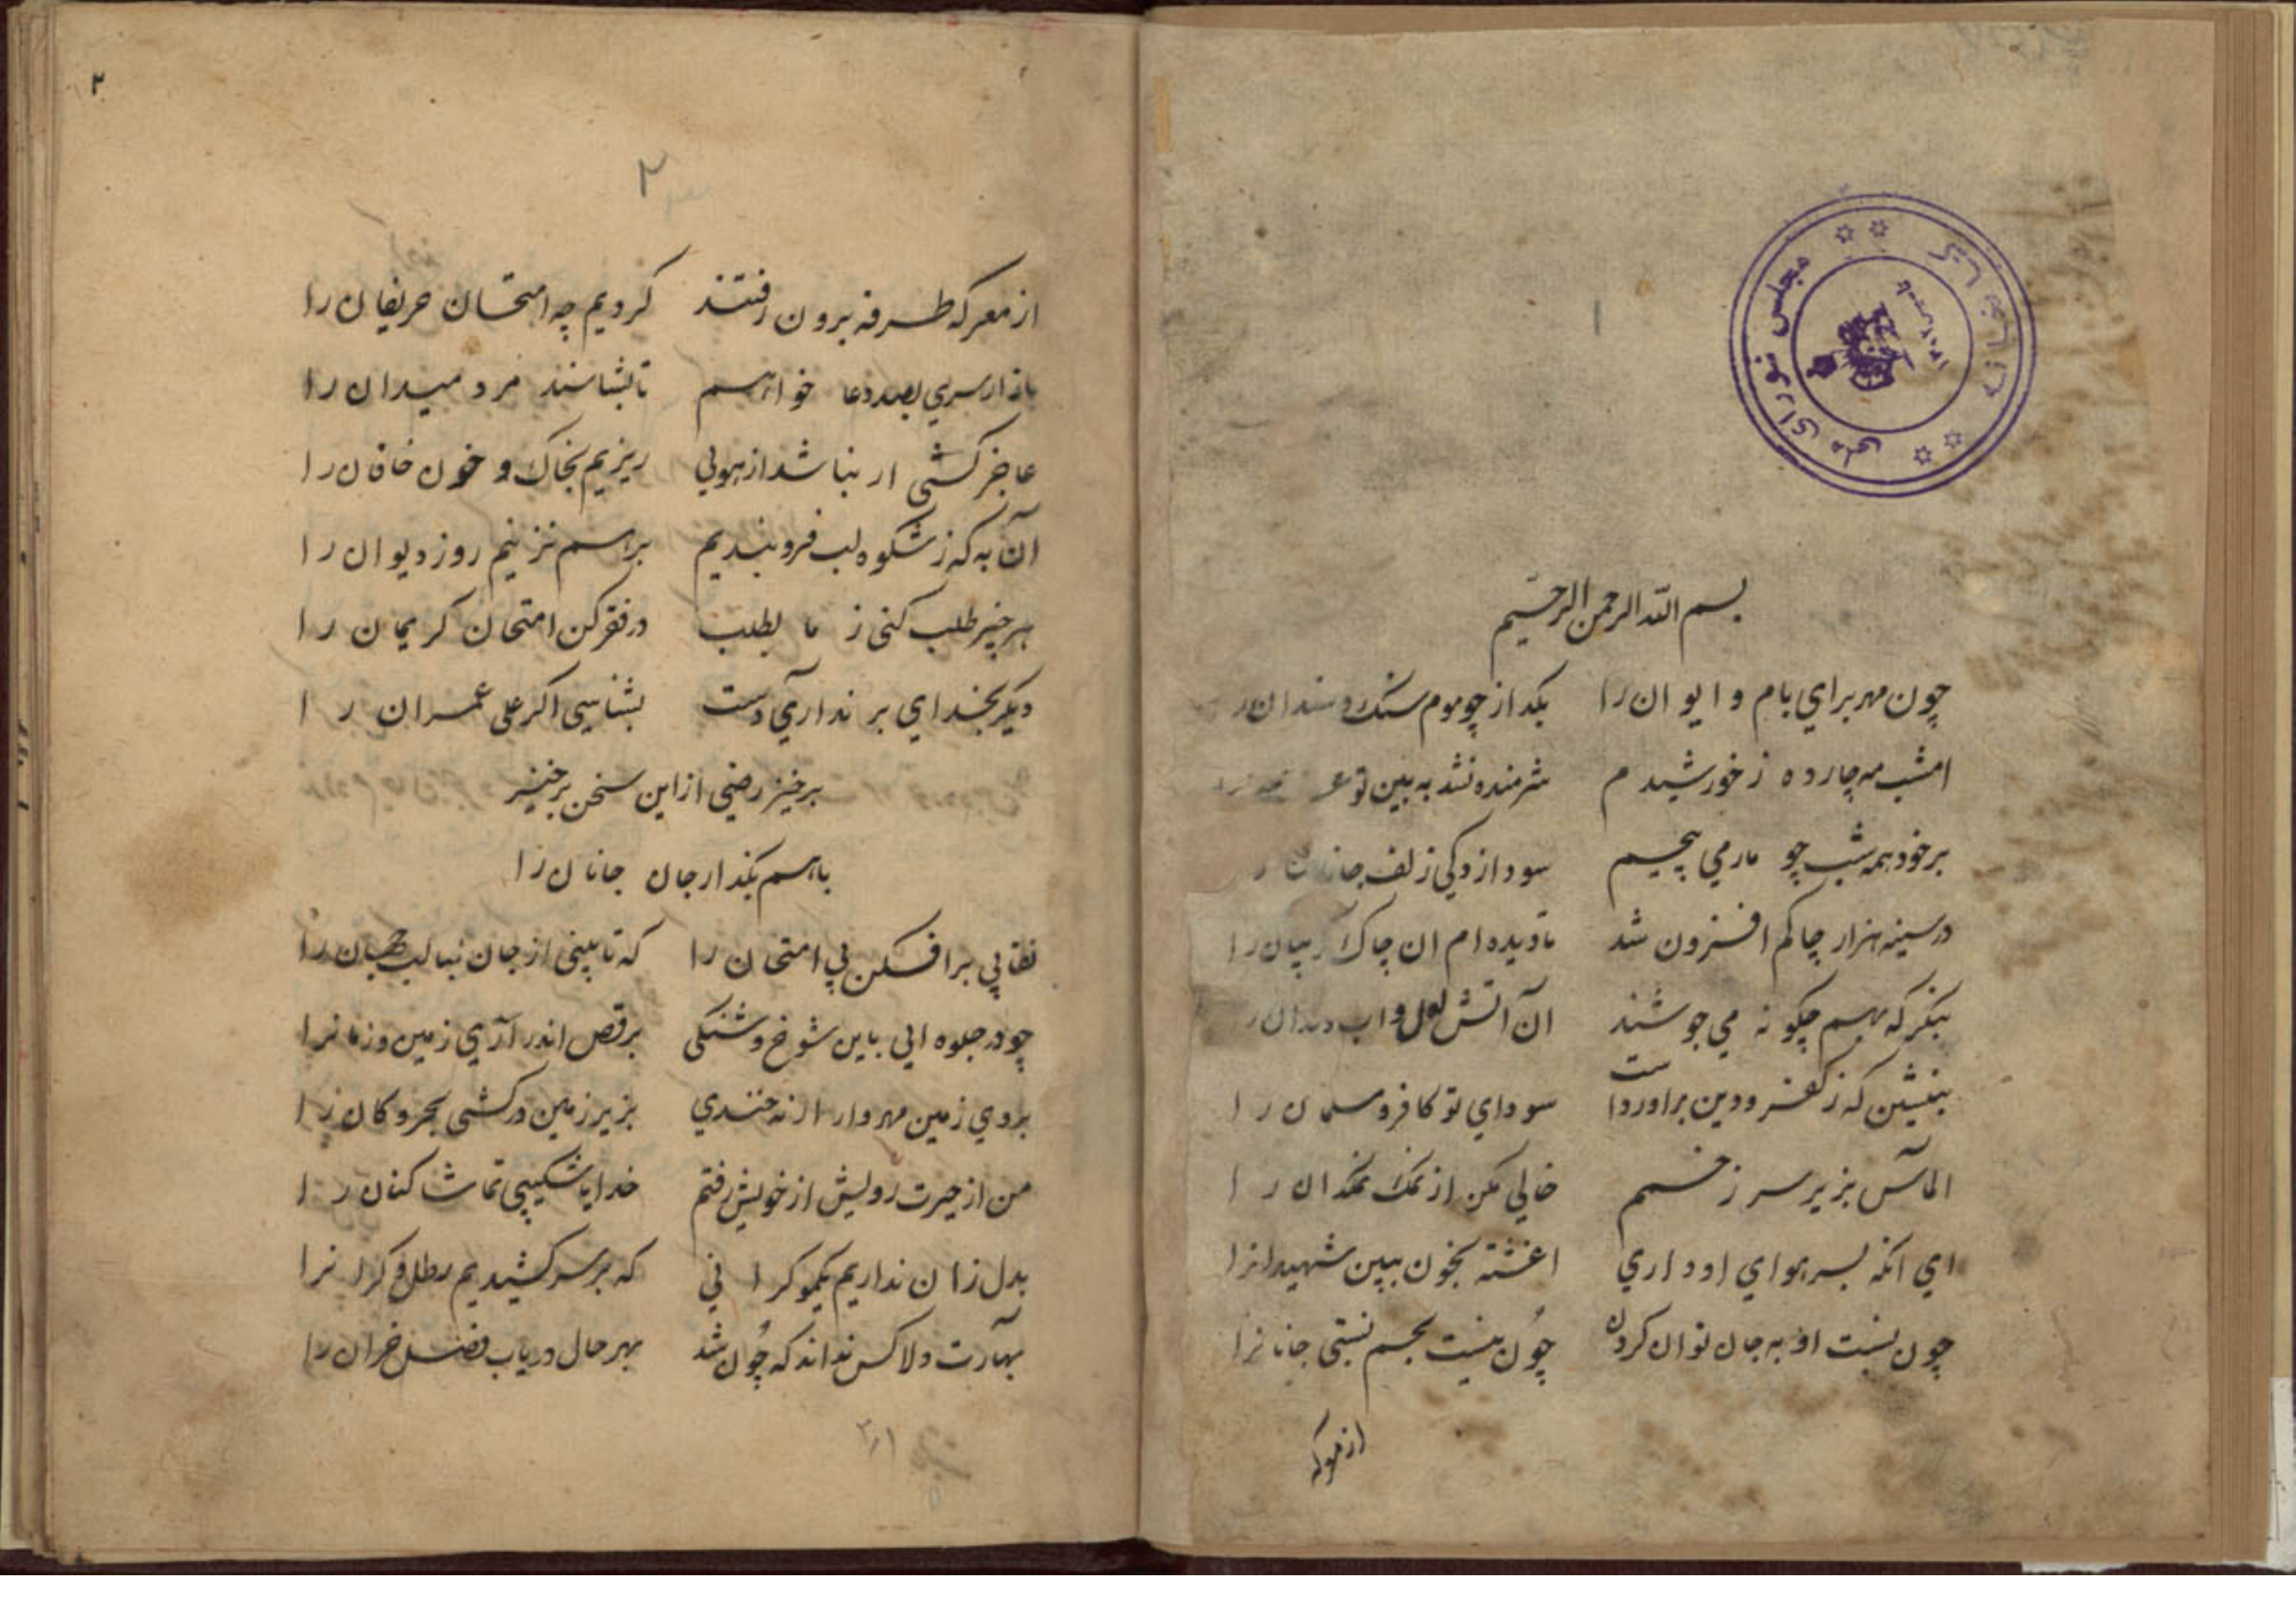 کتابخانه مجلس شورای ملی
۱
بسم الله الرحمن الرحیم
چون مهر برای بام و ایوان را بکداز چو موم سنک و سندان را
امشب مه چارده ز خورشیدم شرمنده نشد به بین تو
بر خود همه شب چو مار می پیچیم سودازدکی زلف جانان را
در سینه هزار چاکم افزون شد تا دیده ام ان چاک کریبان را
بنکر که بهم چکونه می جوشند آن آتش لعل و اب دندان را
بنشین که ز کفر و دین براورداست سودای تو کافر و مسلمان را
الماس بزیر سر زخمم خالی مکن از نمک نمکدان را
ای انکه بسر هوای او داری اغشته بخون ببین شهیدانرا
چون نسبت او به جان توان کردن چون نیست بجسم نسبتی جانانرا
از معرکه
۲
۲
از معرکه طرفه برون رفتند کردیم چه امتحان حریفان را
بازار سری بصد دعا خواهم تا بشناسند مرد میدان را
عاجز کشی ار نباشد از هولی ریزیم بخاک و خون خاقان را
آن به که ز شکوه لب فرو بندیم برهم نزنیم روز دیوان را
هر چیز طلب کنی ز ما بطلب در فقر کن امتحان کریمان را
دیکر بخدای بر نداری دست بشناسی اکر علی عمران را
برخیز رضی از این سخن برخیز
باهم بکذار جان جانان را
نقابی برافکن پی امتحان را که تا بینی از جان لبالب جهان را
چو در جلوه ایی باین شوخ و شنکی برقص اندر آری زمین و زمانرا
بروی زمین مهر وار ار نه خندی بزیر زمین در کشی بحر و کان را
من از حیرت رویش از خویش رفتم خدایا شکیبی تماشا کنان را
بدل زان نداریم یکمو کرانی که بر سر کشیدیم رطل کرانرا
بهارت دلا کس نداند که چون شد بهر حال دریاب فصل خزان را